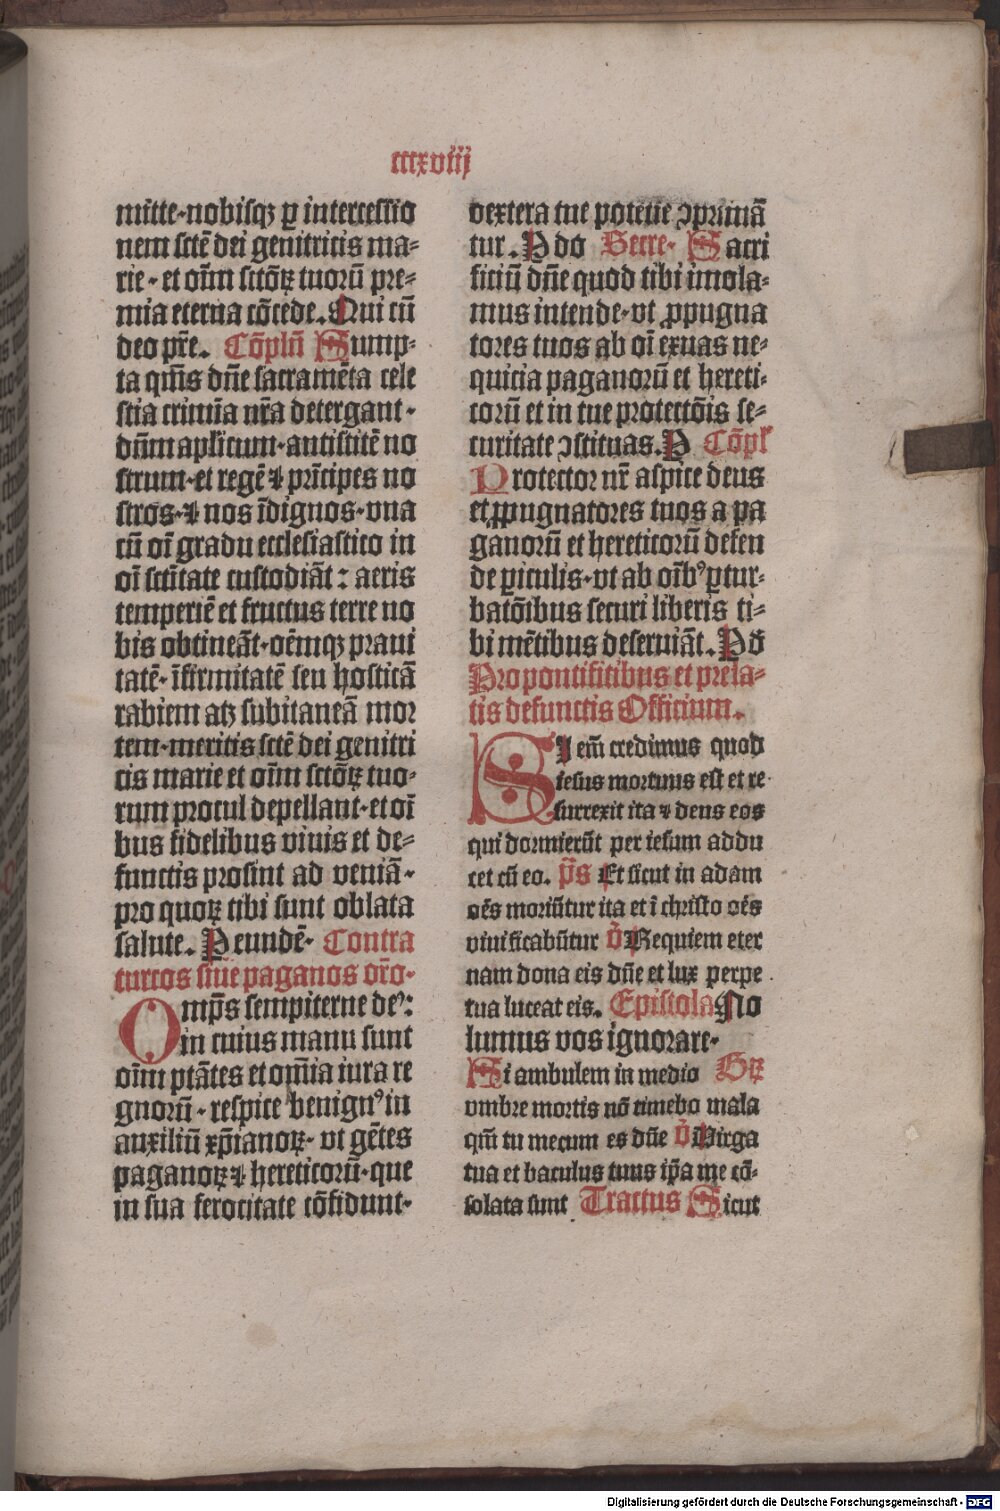 cccxviij
mitte·nobisqꝫ ꝑ intercessio
nem sctē dei genitricis ma⸗
rie·et oīm sctōꝝ tuorū pre⸗
mia eterna cōcede. Qui cū
deo pr̄e. Cōplīī Sump⸗
ta qm̄s dn̄e sacramēta cele
stia crimīa nr̄a detergant·
dn̄m apl̄icum·antistitē no
strum·et regē ⁊ prīcipes no
stros·⁊ nos īdignos·vna
cū oī gradu ecclesiastico in
oī sctītate custodiāt : aeris
temperiē et fructus terre no
bis obtineāt·oēmqꝫ praui
tatē·īfirmitatē seu hosticā
rabiem atqꝫ subitaneā mor
tem·meritis sctē dei genitri
cis marie et oīm sctōꝝ tuo⸗
rum procul depellant·et oī
bus fidelibus viuis et de⸗
functis prosint ad veniā·
pro quoꝝ tibi sunt oblata
salute. Peundē· Contra
turcos siue paganos orō·
Omp̄s sempiterne de⁹:
in cuius manu sunt
oīm ptātes et om̄ia iura re
gnorū·respice benign⁹ in
auxiliū xp̄ianoꝝ·vt gētes
paganoꝝ ⁊ hereticorū·que
in sua ferocitate cōfidunt·
dextera tue potētie ꝯprimā
tur. P do Secre· Sacri
ficiū dn̄e quod tibi imola⸗
mus intende·vt ꝓpugna
tores tuos ab oī exuas ne⸗
quicia paganorū et hereti⸗
corū et in tue protectōis se⸗
curitate ꝯstituas. P Cōpl
Protector nr̄ aspice deus
et ꝓpugnatores tuos a pa
ganorū et hereticorū defen
de ꝑiculis·vt ab oīb⁹ ꝑtur⸗
batōibus securi liberis ti⸗
bi mētibus deseruiāt. P dō
Pro pontificibus et prela⸗
tis defunctis Officium.
SI em̄ credimus quod
iesus mortuus est et re
surrexit ita ⁊ deus eos
qui dormierūt per iesum addu
cet cū eo. p̄s Et sicut in adam
oēs moriūtur ita et ī christo oēs
viuificabūtur v̄ Requiem eter
nam dona eis dn̄e et lux perpe
tua luceat eis. Epistola No
lumus vos ignorare·
Si ambulem in medio Gꝝ
vmbre mortis nō timebo mala
qm̄ tu mecum es dn̄e v̄ Virga
tua et baculus tuus ip̄a me cō⸗
solata sunt Tractus Sicut
Digitalisierung gefördert durch die Deutsche Forschungsgemeinschaft - DFG